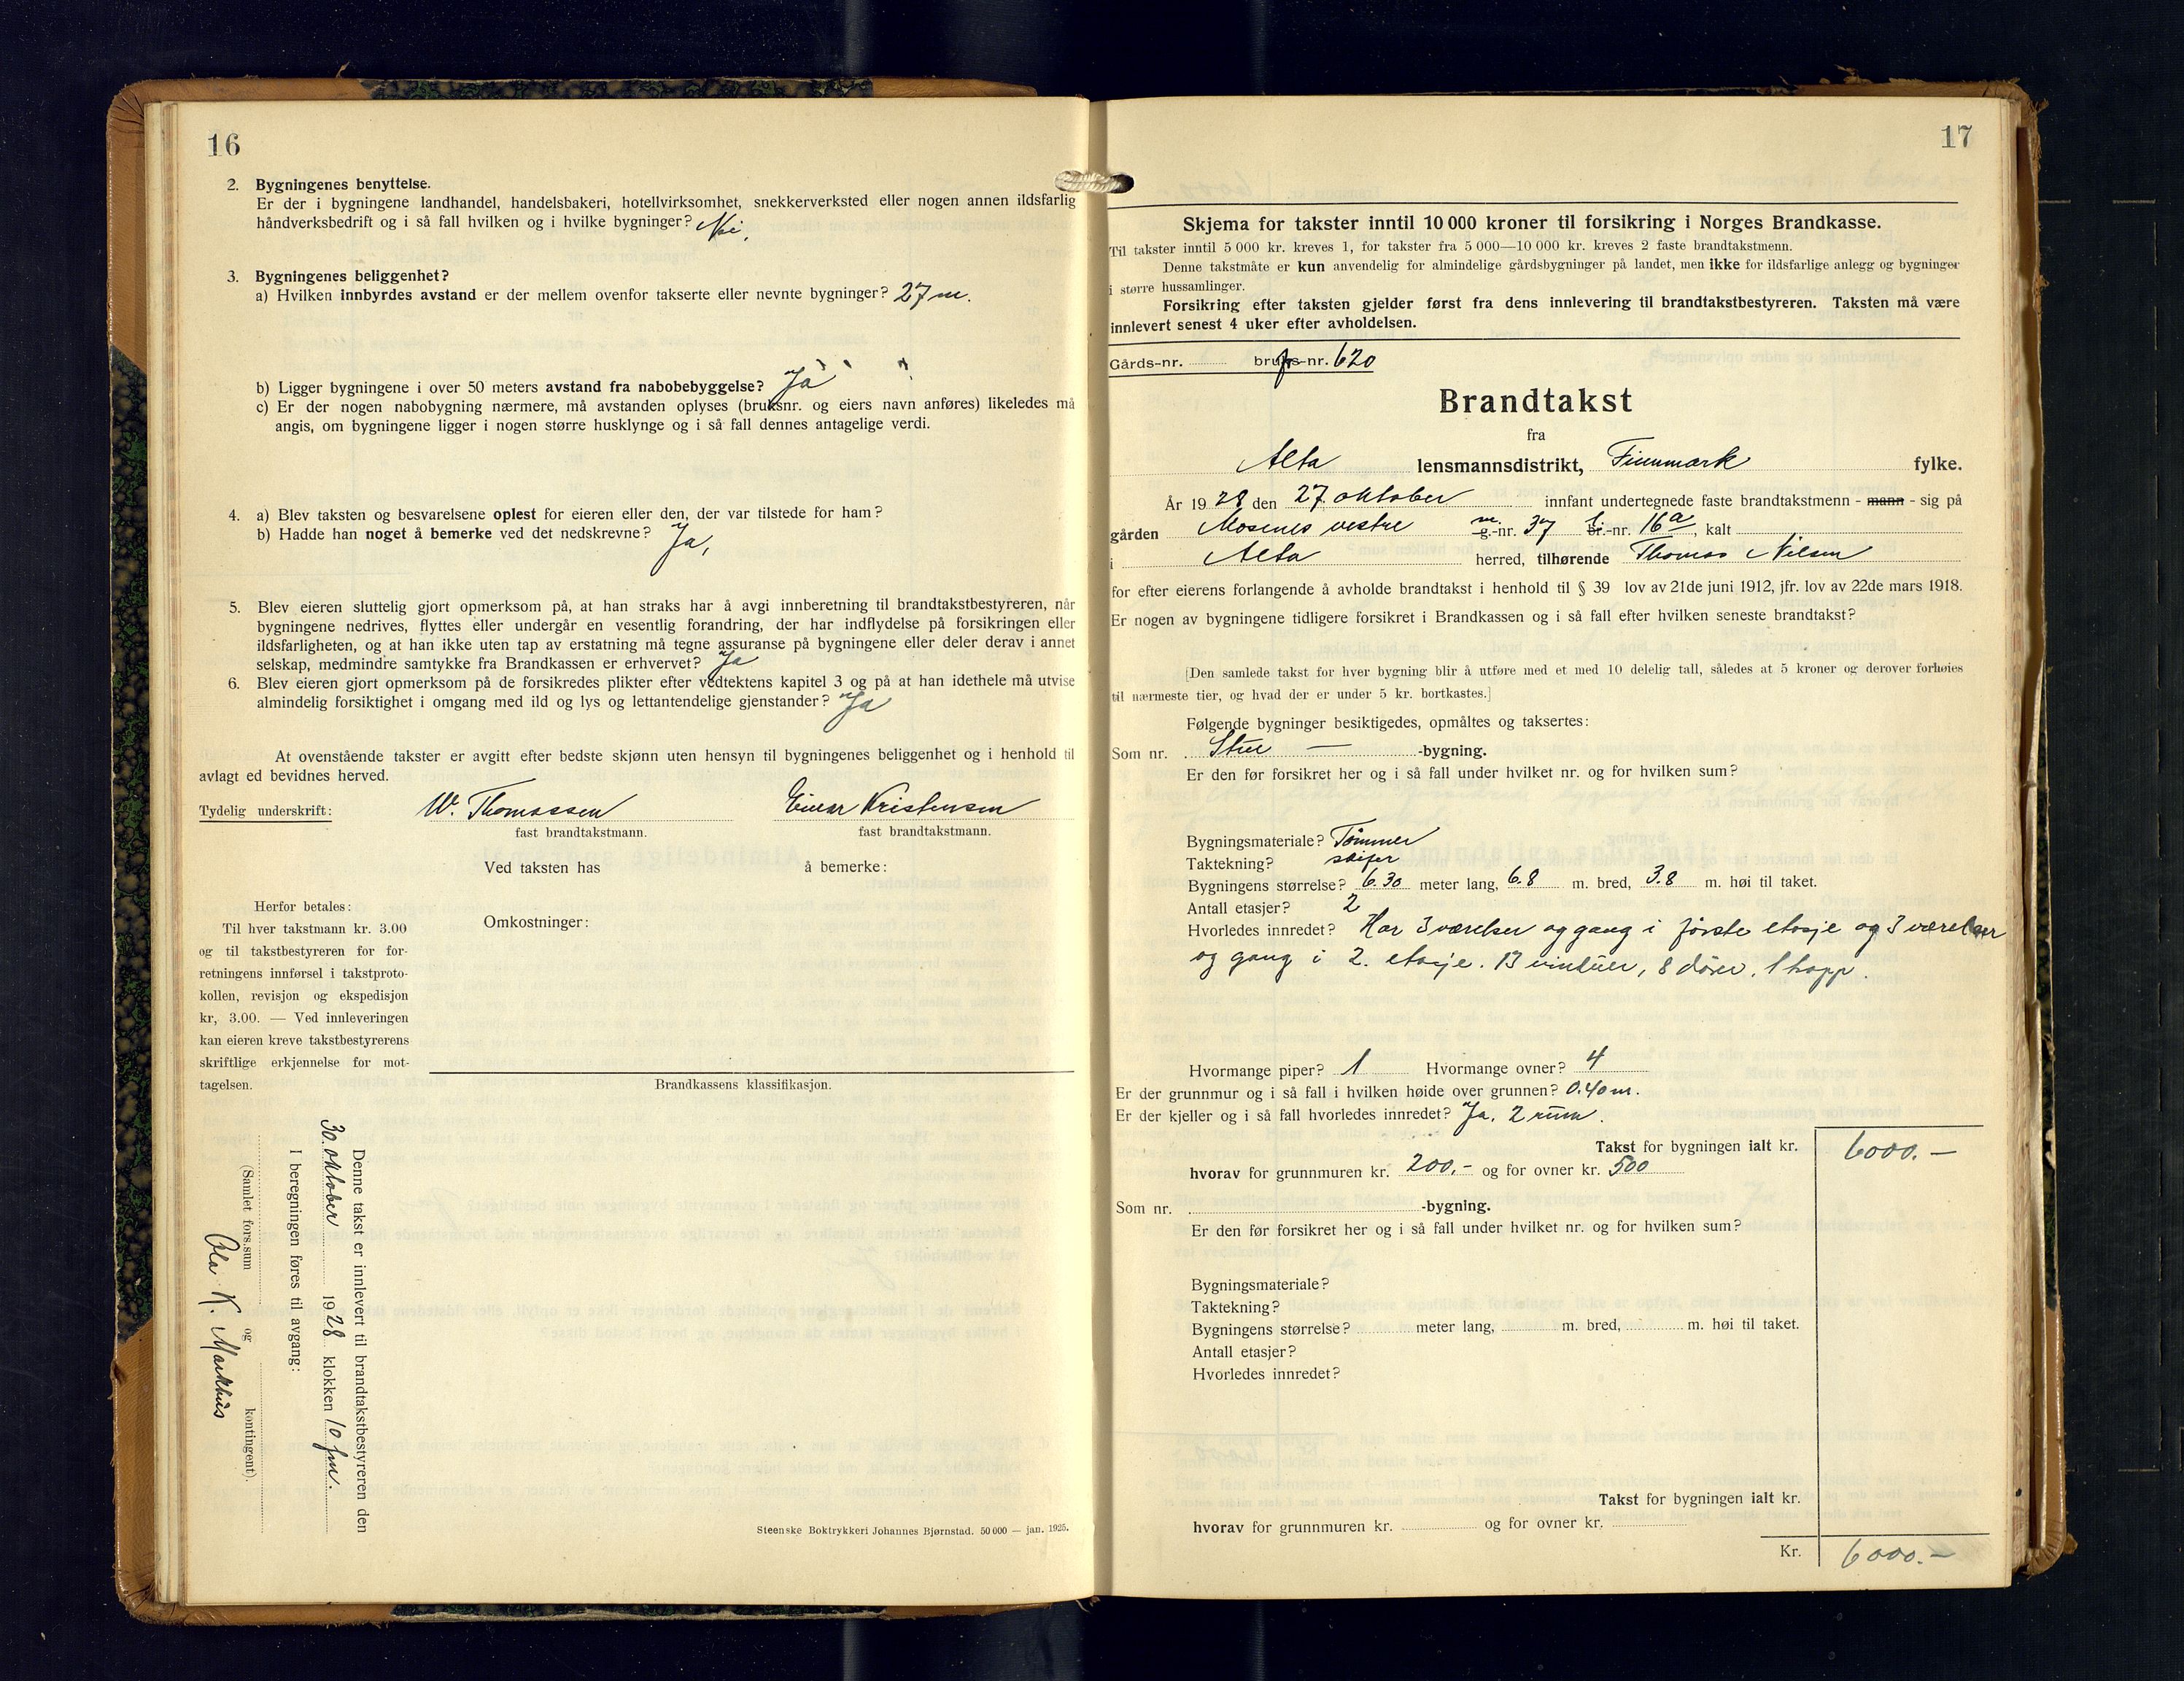 16
2. Bygningenes benyttelse.
Er der i bygningene landhandel, handelsbakeri, hotellvirksomhet, snekkerverksted eller nogen annen ildsfarlig
håndverksbedrift og i så fall hvilken og i hvilke bygninger? Nei,
3. Bygningenes beliggenhet?
a) Hvilken innbyrdes avstand er der mellem ovenfor takserte eller nevnte bygninger? 27 m.
b) Ligger bygningene i over 50 meters avstand fra nabobebyggelse? Ja
c) Er der nogen nabobygning nærmere, må avstanden oplyses (bruksnr. og eiers navn anføres) likeledes må
angis, om bygningene ligger i nogen større husklynge og i så fall dennes antagelige verdi.
4. a) Blev taksten og besvarelsene oplest for eieren eller den, der var tilstede for ham?
b) Hadde han noget å bemerke ved det nedskrevne? Ja,
5. Blev eieren sluttelig gjort opmerksom på, at han straks har å avgi innberetning til brandtakstbestyreren, når
bygningene nedrives, flyttes eller undergår en vesentlig forandring, der har indflydelse på forsikringen eller
ildsfarligheten, og at han ikke uten tap av erstatning må tegne assuranse på bygningene eller deler derav i annet
selskap, medmindre samtykke fra Brandkassen er erhvervet? Ja
6. Blev eieren gjort opmerksom på de forsikredes plikter efter vedtektens kapitel 3 og på at han idethele må utvise
almindelig forsiktighet i omgang med ild og lys og lettantendelige gjenstander? Ja
At ovenstående takster er avgitt efter bedste skjønn uten hensyn til bygningenes beliggenhet og i henhold til
avlagt ed bevidnes herved.
Tydelig underskrift: W. Thomassen Einar Kristensen
fast brandtakstmann. fast brandtakstmann.
Ved taksten has å bemerke:
Herfor betales:
Til hver takstmann kr. 3.00
og til takstbestyreren for for-
retningens innførsel i takstproto-
kollen, revisjon og ekspedisjon
kr, 3.00. — Ved innleveringen
kan eieren kreve takstbestyrerens
skriftlige erkjennelse for mot-
tagelsen.
Omkostninger:
Brandkassens klassifikasjon.
Denne takst er innlevert til brandtakstbestyreren den
30. oktober 1928 klokken 10 fm.
I beregningen føres til avgang:
(Samlet fors.sum og kontingent).
Ola K. Markhus
Steenske Boktrykkeri Johannes Bjørnstad. 50 000 — jan. 1925.
17
Skjema for takster inntil 10 000 kroner til forsikring i Norges Brandkasse.
Til takster inntil 5 000 kr. kreves 1, for takster fra 5 000—10 000 kr. kreves 2 faste brandtakstmenn.
Denne takstmåte er kun anvendelig for almindelige gårdsbygninger på landet, men ikke for ildsfarlige anlegg og bygninger
i større hussamlinger.
Forsikring efter taksten gjelder først fra dens innlevering til brandtakstbestyreren. Taksten må være
innlevert senest 4 uker efter avholdelsen.
Gårds-nr. bruks-nr. 620
Brandtakst
fra
Alta lensmannsdistrikt, Finnmark fylke.
År 1928 den 27. oktober innfant undertegnede faste brandtakstmenn - mann - sig på
gården Mosenes vestre m. g.-nr. 37 l. br.-nr. 16a, kalt
i Alta herred, tilhørende Thomas Nilsen
for efter eierens forlangende å avholde brandtakst i henhold til § 39 lov av 21de juni 1912, jfr. lov av 22de mars 1918.
Er nogen av bygningene tidligere forsikret i Brandkassen og i så fall efter hvilken seneste brandtakst?
[Den samlede takst for hver bygning blir å utføre med et med 10 delelig tall, således at 5 kroner og derover forhøies
til nærmeste tier, og hvad der er under 5 kr. bortkastes.]
Følgende bygninger besiktigedes, opmåltes og taksertes:
Som nr. Stue — -bygning.
Er den før forsikret her og i så fall under hvilket nr. og for hvilken sum?
Bygningsmateriale? Tømmer
Taktekning? skifer
Bygningens størrelse? 6.30 meter lang, 6.8 m. bred, 3.8 m. høi til taket.
Antall etasjer? 2
Hvorledes innredet? Har 3 værelser og gang i første etasje og 3 værelser
og gang i 2. etasje. 13 vinduer, 8 dører, 1 trapp.
Hvormange piper? 1 Hvormange ovner? 4
Er der grunnmur og i så fall i hvilken høide over grunnen? 0.40 m.
Er der kjeller og i så fall hvorledes innredet? Ja, 2 rum.
Takst for bygningen ialt kr. 6000.—
hvorav for grunnmuren kr. 200.- og for ovner kr. 500
Som nr. -bygning.
Er den før forsikret her og i så fall under hvilket nr. og for hvilken sum?
Bygningsmateriale?
Taktekning?
Bygningens størrelse? meter lang, m. bred, m. høi til taket.
Antall etasjer?
Hvorledes innredet?
Takst for bygningen ialt kr.
hvorav for grunnmuren kr. og for ovner kr.
Kr. 6000.—